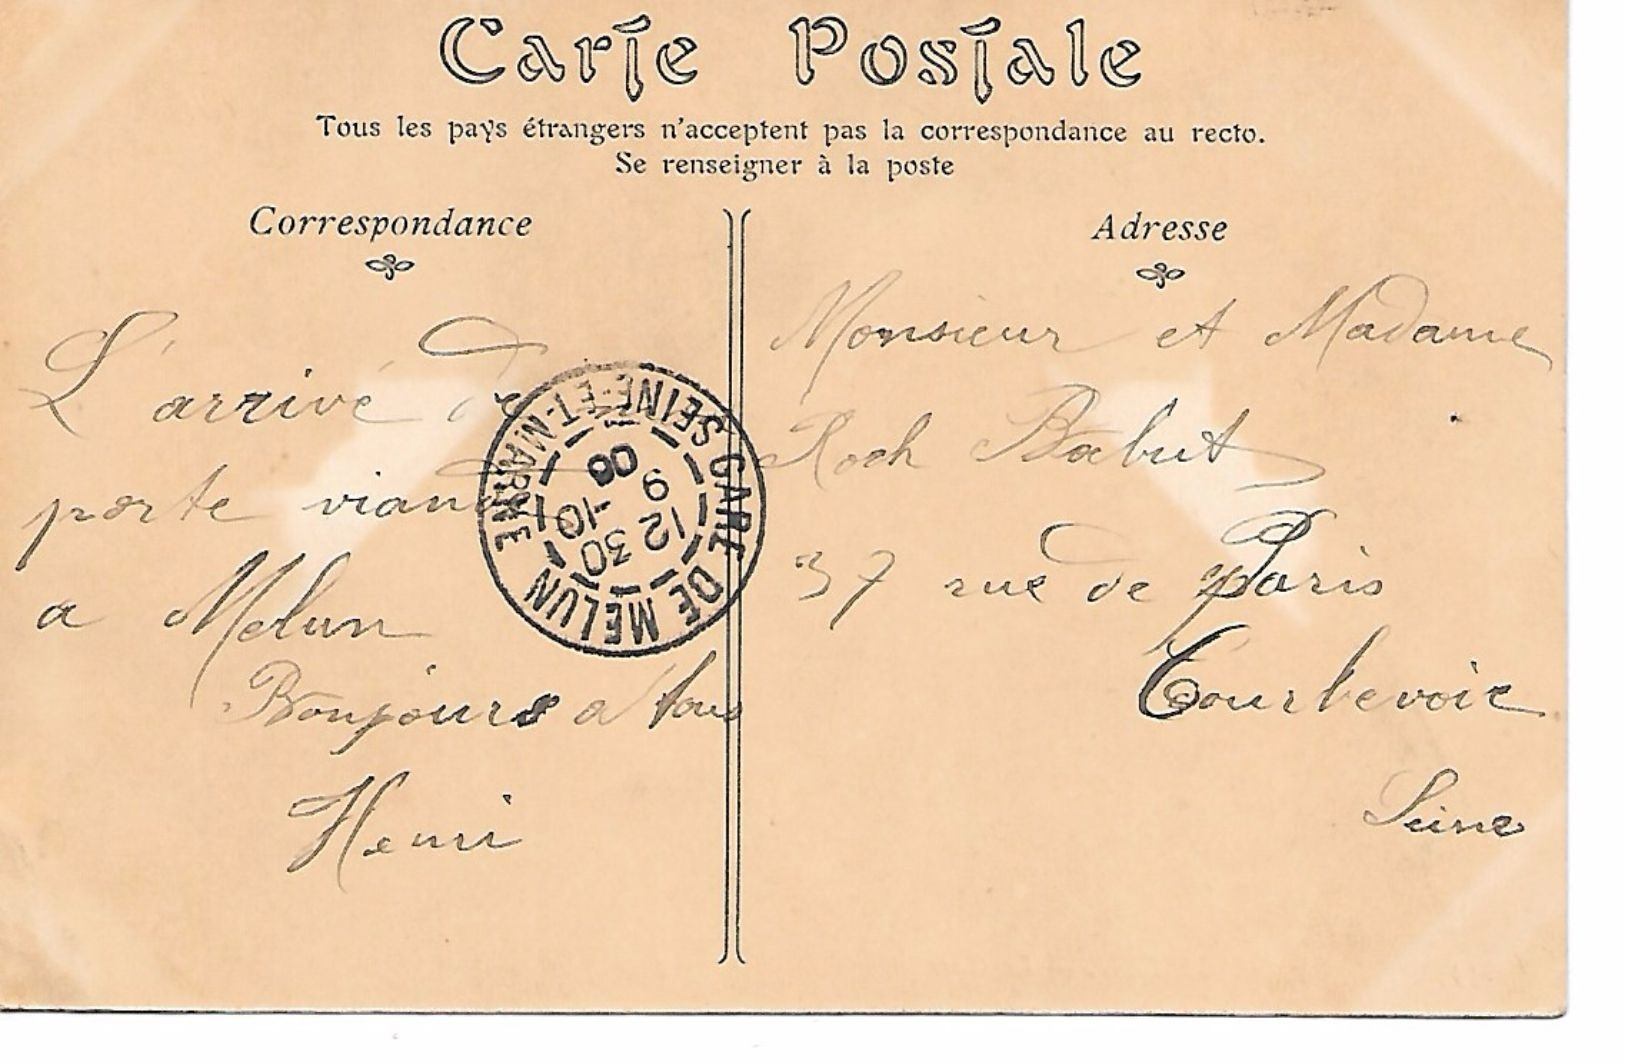 Carte Postale
Tous les pays étrangers n'acceptent pas la correspondance au recto.
Se renseigner à la poste
Correspondance
L'arrivé de
porte viande
a Melun
Bonjours a tous
Henri
GARE DE MELUN SEINE-ET-MARNE
12 30
9 -10
06
Adresse
Monsieur et Madame
Roch Babut
37 rue de Paris
Courbevoie
Seine